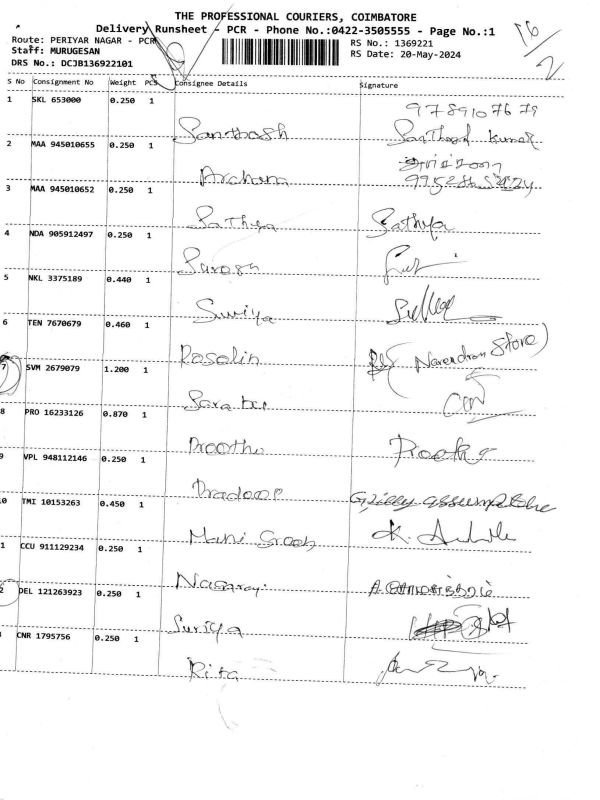 THE PROFESSIONAL COURIERS, COIMBATORE
Delivery Runsheet - PCR - Phone No.:0422-3505555 - Page No.:1
16/2
Route: PERIYAR NAGAR - PCR
RS No.: 1369221
Staff: MURUGESAN
RS Date: 20-May-2024
DRS No.: DCJB136922101
S No Consignment No Weight PCS Consignee Details Signature
1 SKL 653000 0.250 1
9789107679
Santhosh Santhosh Kumar
2 MAA 945010655 0.250 1
Archana
3 MAA 945010652 0.250 1
Sathya Sathya
4 NDA 905912497 0.250 1
Suresh
5 NKL 3375189 0.440 1
Suriya
6 TEN 7670679 0.460 1
Rosalin (Narendran Store)
7 SVM 2679079 1.200 1
Sarabu
8 PRO 16233126 0.870 1
Preethi
9 VPL 948112146 0.250 1
Pradeep
0 TMI 10153263 0.450 1
Mani
1 CCU 911129234 0.250 1
Nagaraj
2 DEL 121263923 0.250 1
Suriya
CNR 1795756 0.250 1
Rita